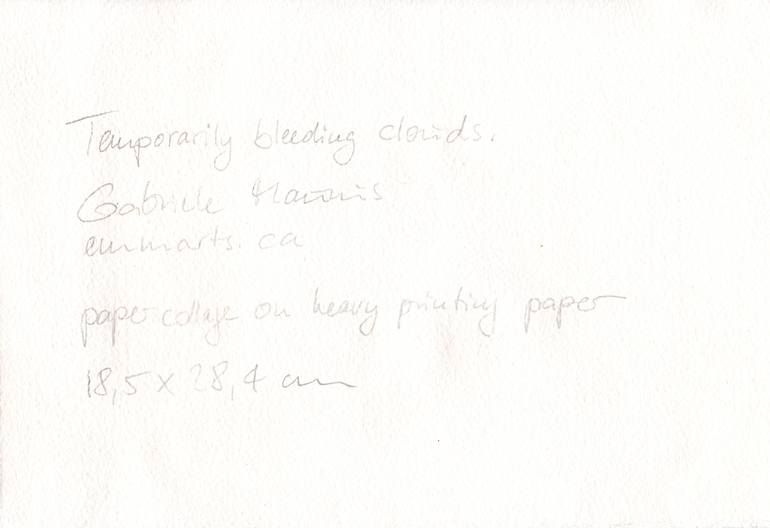 Temporarily bleeding clouds.
Gabriele
emmarts.ca
paper collage on heavy printing paper
18,5 x 28,4 cm